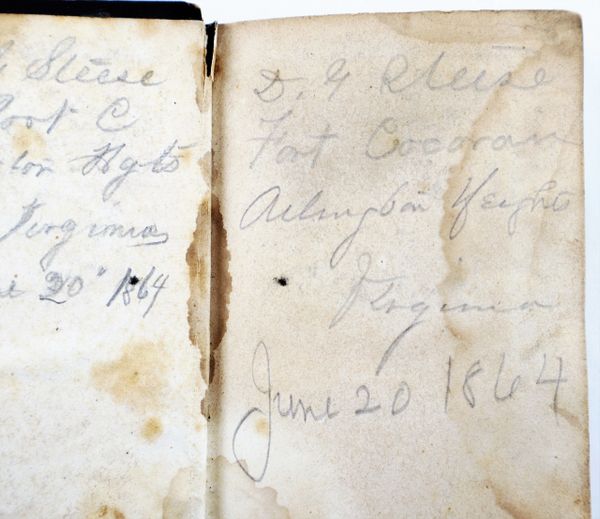 Steese
Fort C
ton Hgts
Virginia
"20" 1864
D. G Steese
Fort Cocoran
Arlington Heights
Virginia
June 20 1864